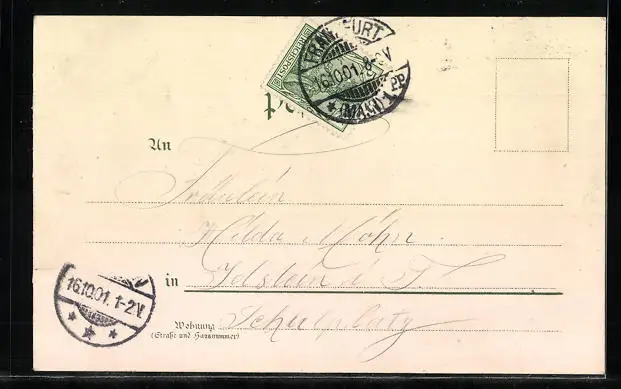 FRANKFURT
16.10.01. 8-9V
* (MAIN) 1 PP
An
Fräulein
Hilda Möhn
in Idstein i T.
Wohnung Schulplatz
(Straße und Hausnummer)
16.10.01. 1-2V.